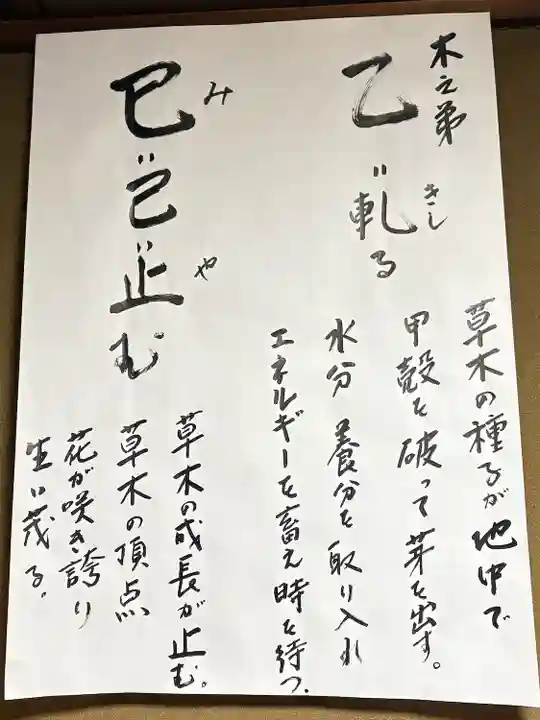 木之弟
乙〃軋る
きし
草木の種子が地中で
甲殻を破って芽を出す。
水分 養分を取り入れ
エネルギーを畜え時を待つ.
巳〃已〃止む
み
や
草木の成長が止む。
草木の頂点
花が咲き誇り
生い茂る。